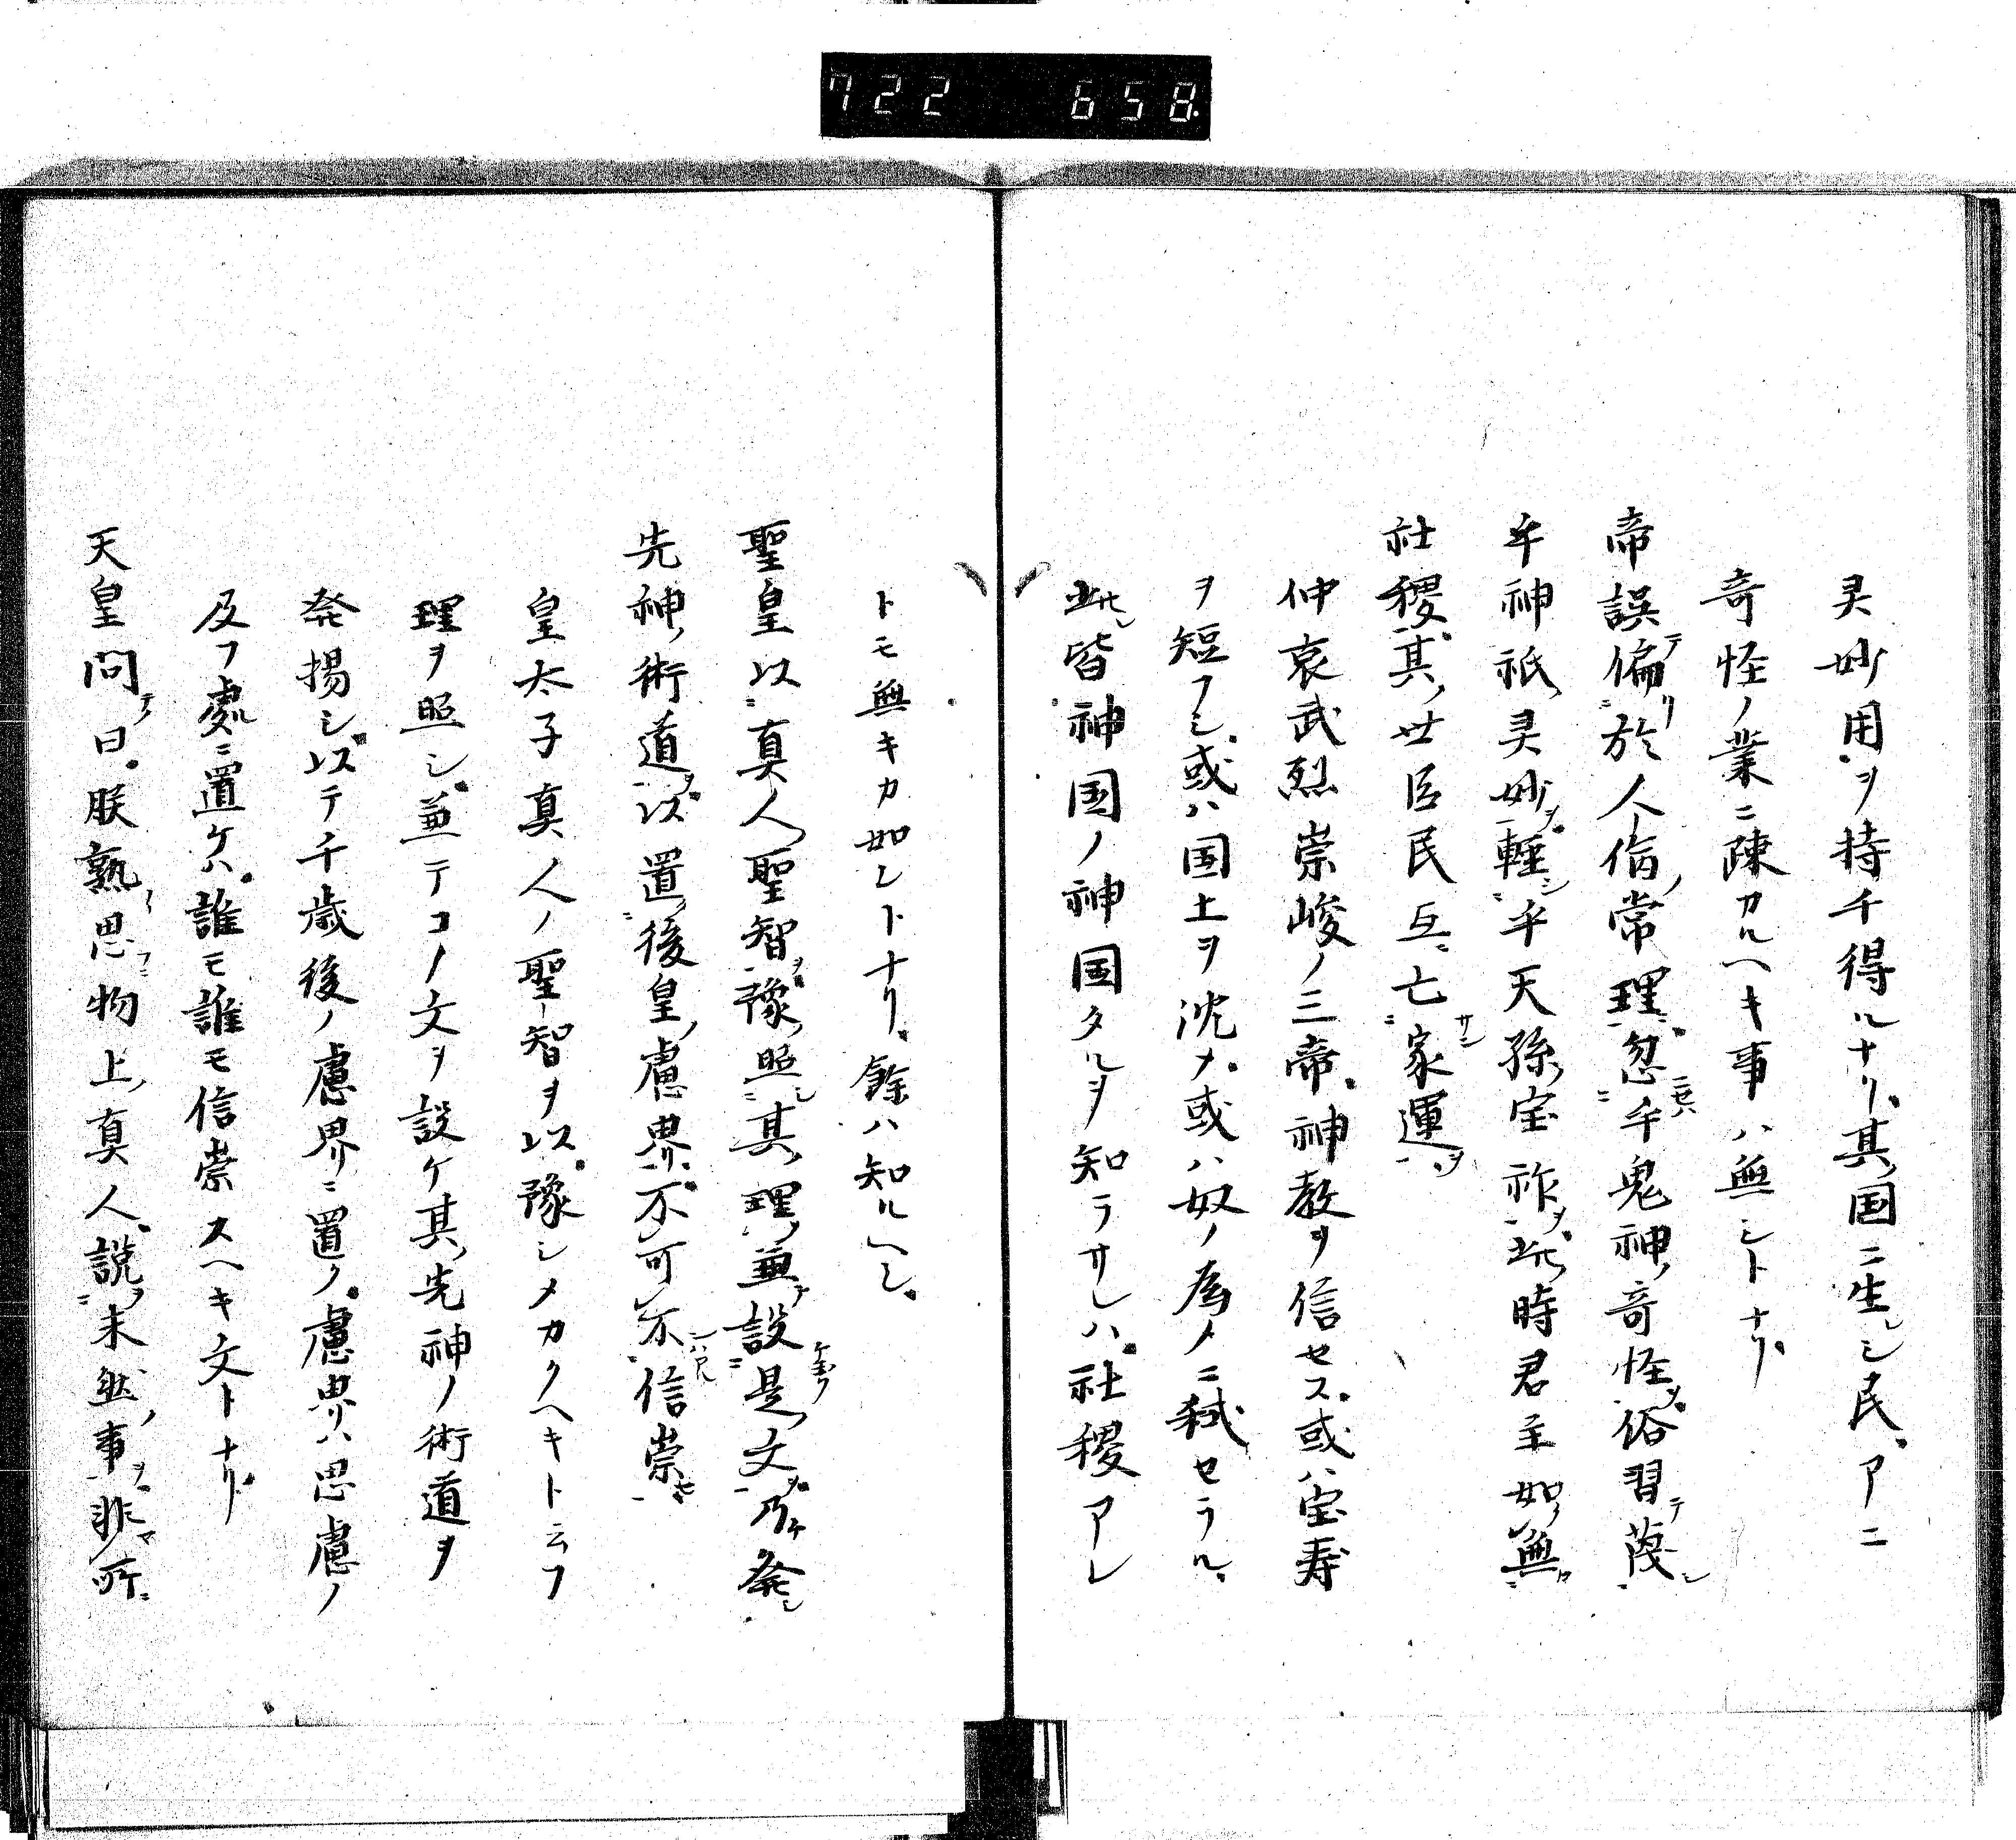 722 658.
灵妙用ヲ持チ得ルナリ其国ニ生レシ民アニ
奇怪ノ業ニ疎カルヘキ事ハ無シトナリ
帝誤テ偏リ於人倫ノ常理ニ忽ニセハ乎鬼神ノ奇怪ヲ俗習テ蔑シ
乎神祇ノ灵妙ヲ軽シ乎天孫ノ宝祚ヲ此時君主如ク無ク
社稷其ノ世臣民互ニ亡サン家運ヲ
仲哀武烈崇峻ノ三帝神教ヲ信セス或ハ宝寿
ヲ短フシ或ハ国土ヲ沈メ或ハ奴ノ為メニ弑セラル
此レ皆神国ノ神国タルヲ知ラサレハ社稷アレ
トモ無キカ如レトナリ餘ハ知ルヘシ
聖皇以真人ノ聖智ヲ豫シ照其ノ理ヲ兼テ設ケ玉フ是ノ文ヲ乃ケ発シ
先神ノ術道ヲ以置ク後皇ノ慮界ニ不可ク不シハアル信崇セ
皇太子真人ノ聖智ヲ以豫シメカクヘキト云フ
理ヲ照シ兼テコノ文ヲ設ケ其ノ先神ノ術道ヲ
発揚シ以テ千歳後ノ慮界ニ置ク慮界ハ思慮ノ
及フ処ニ置ケハ誰モ誰モ信崇スヘキ文トナリ
天皇問テ曰朕熟ラ思フニ物上真人説ク未然ノ事ヲ非所ニ